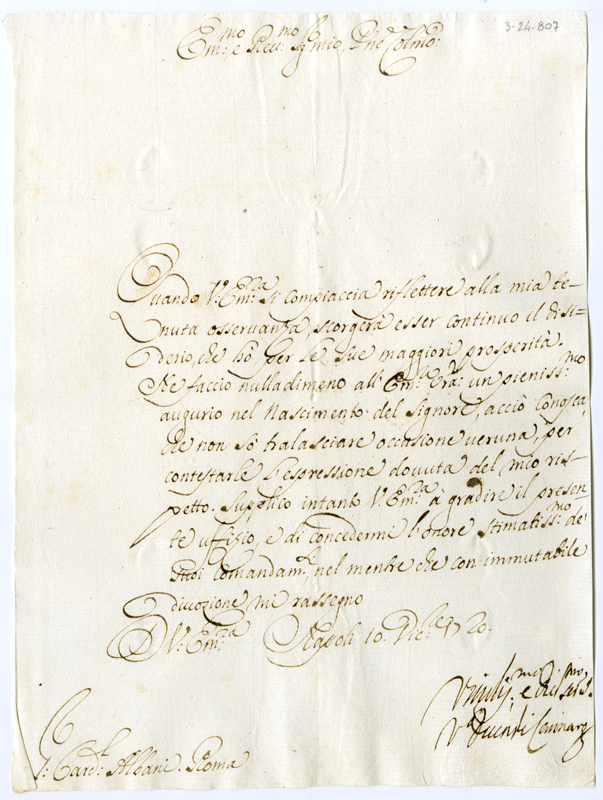 3-24-807
Em:mo e Rev:mo Sig mio, Pne Colmo:
Quando V: Em:za si compiaccia riflettere alla mia te-
nuta osservanza, scorgerà esser continuo il disi-
derio, che hò per le sue maggiori prosperità.
Ne faccio nulladimeno all' Em:za Vra: un pieniss:mo
augurio nel Nascimento del Signore, acciò conosca,
che non sò tralasciare occasione veruna, per
contestarle l'espressione dovuta del mio ris-
petto. Supplico intanto V: Em:za a gradire il presen-
te uffizio, e di concedermi l'onore stimatiss:mo de'
suoi comandam:ti nel mentre che con immutabile
divozione mi rassegno
D V: Em:za Napoli 10. Xbre 1720.
:mo e :mo
Card:l Albani. Roma